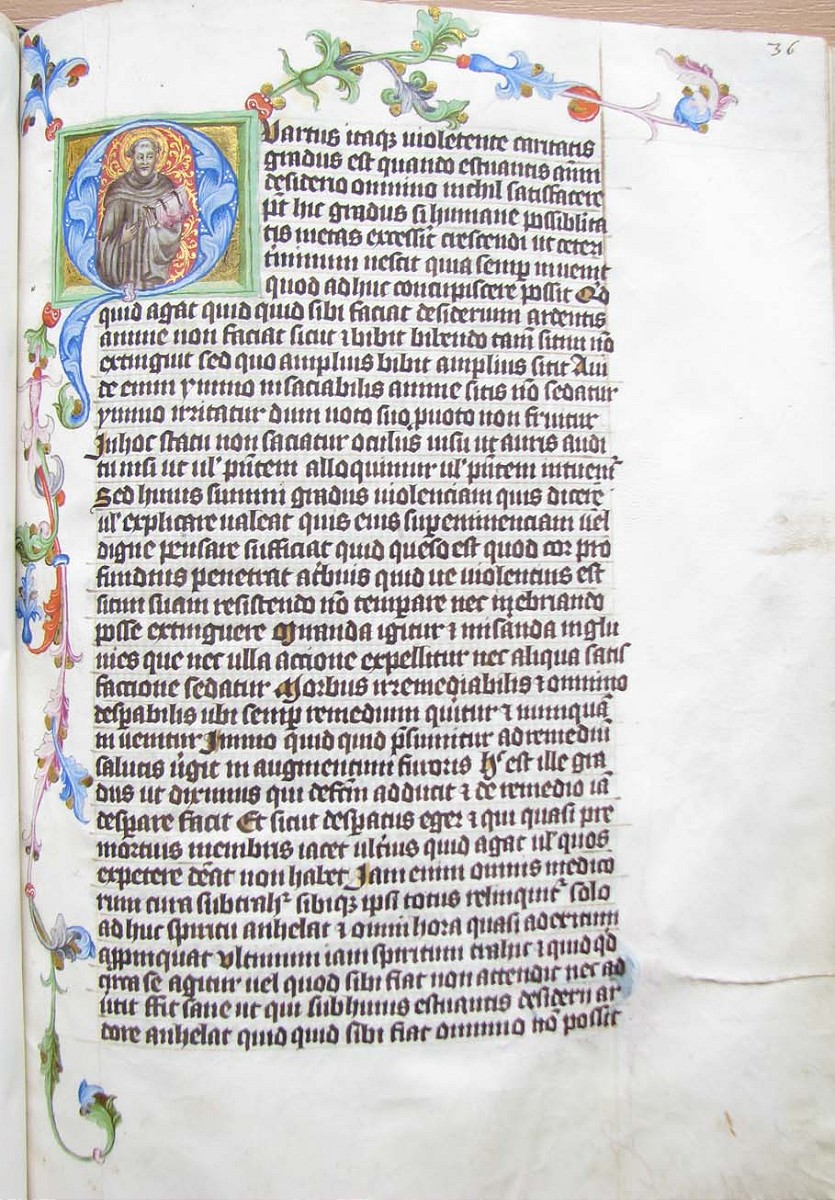 36
Quartus itaqz violetente caritatis
gradus est quando estuantis aīm
desiderio omnino nichil satisfacere
pt̄ hic gradus si humane possiblita
tis metas excessit crescendi ut ceteri
terminum nescit quia semp inuenit
quod adhuc concupiscere possit Qd
quid agat quid quid sibi faciat desiderium ardentis
anime non faciat sicut ⁊ bibit bibendo tam̄ sitim nō
extinguit sed quo amplius bibit amplius sitit Aui
de enim ymmo insaciabilis anime sitis nō sedatur
ymmo irritatur dum uoto suo puoto non fruitur
In hoc statu non saciatur oculus uisu ut auris audi
tu nisi ut ul' pn̄tem alloquimur ul' pn̄tem intuent᷑
Sed huius summi gradus uiolenciam quis dicere
ul' explicare ualeat quis eius supeminenciam uel
digne pensare sufficiat quid queso est quod cor pro
fundius penetrat acbuis quid ue uiolentius est
sitim suam resistendo nō temperare nec inebriando
posse extinguere Miranda igitur ⁊ misanda inglu
uies que nec ulla accione expellitur nec aliqua satis
faccione sedatur Morbus irremediabilis ⁊ omnino
despabilis ubi semp remedium quitur ⁊ nunquā
in uenitur Immo quid quid p̄sumitur ad remediū
salutis ūgit in augmentum furoris hᷤ est ille gra
dus ut diximus qui deffm̄ adducit ⁊ de remedio iā
desperare facit Et sicut despatus eger ⁊ qui quasi pre
mortuis membris iacet ultius quid agat ul' quos
expetere deāt non habet Iam enim omnis medico
rum cura subtrahr᷑ sibiqz ipsi totus relinquit᷑ solo
ad huc spiritu anhelat ⁊ omni hora quasi ad exitum
appinquat Vltimum iam spiritum trahit ⁊ quid qd
circa se agitur uel quod sibi fiat non attendit nec ad
uitit ffit sane ut qui sub huius estuantis desiderii ar
dore anhelat quid quid sibi fiat omnino nō possit